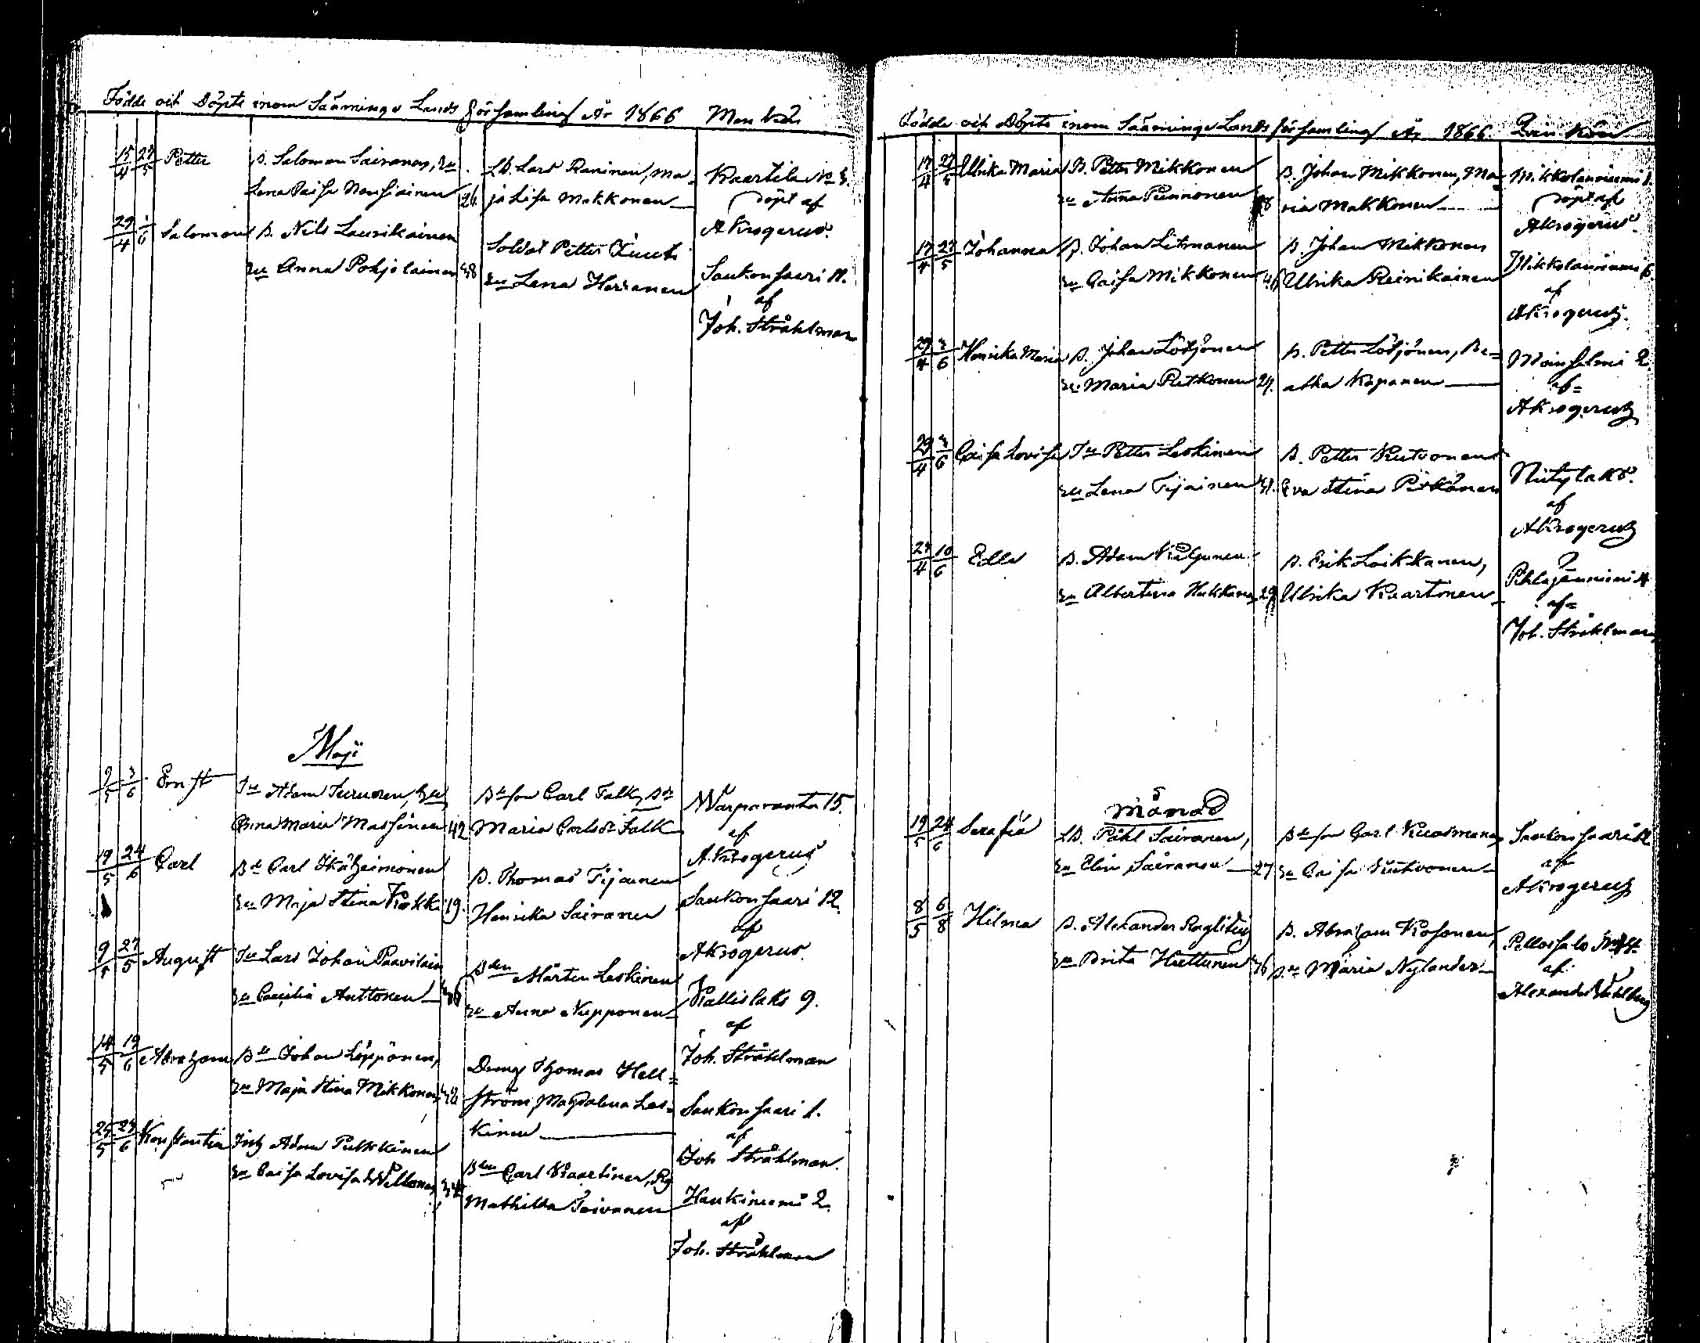 Födde och Döpte inom Sääminge Lands församling År 1866 Mankön
15/4 27/5 Petter
B. Salomon Sairanen, hu
Lena Caisa Nousiainen 26
Ld. Lars Raninen, Ma-
ja Lisa Makkonen
Kaartila No 3.
döpt af
AKrogerus.
29/4 /6 Salomon
B. Nils Laurikainen
hu Anna Pohjolainen 38
Soldat Petter
hu Lena Herranen
Saukonsaari 11.
af
Joh. Stråhlman
Maji
9/5 3/6 Ernst
Adam Turunen, hu
Anna Maria Massinen 42
Carl Falk,
Maria Carlsdr Falk
Warparanta 15.
af
A. Krogerus
19/5 24/6 Carl
Carl
hu Maja Stina Kokki 19.
B. Thomas Tijainen
Henrika Sairanen
Saukonsaari 12.
af
AKrogerus.
9/5 27/5 August
Lars Johan Paavilain
hu Caecilia Anttonen 36
Mårten Leskinen
hu Anna Nupponen
Kallislaks 9.
af
Joh. Stråhlman
14/5 19/6 Abraham
Johan Löppönen,
hu Maja Stina Mikkonen
Dreng Thomas Hell-
ström, Magdalena Les-
kinen
Saukonsaari 1.
af
Joh Stråhlman.
25/5 29/6 Konstantin
Adam Pulkkinen
hu Caisa Lovisa
Carl Kaartinen,
Mathilda Toivanen
Haukiniemi 2.
af
Joh. Stråhlman
Födde och Döpte inom Sääminge Lands församling År 1866. Qvinkön
17/4 27/5 Ulrika Maria
B. Petter Mikkonen
hu Anna Punnonen
B. Johan Mikkonen, Ma-
ria Makkonen
Mikkolanniemi 1.
döpt af
AKrogerus.
17/4 27/5 Johanna
B. Johan Litmanen
hu Caisa Mikkonen
B. Johan Mikkonen
Ulrika Reinikainen
Mikkolanniemi 6
af
AKrogerus.
29/4 3/6 Henrika Maria
B. Johan Lötjönen
hu Maria Putkonen 24.
B. Petter Lötjönen, Be-
atha Kapanen
Moinsalmi 2
af
AKrogerus
29/4 3/6 Caisa Lovisa
Petter Leskinen
hu Lena Tijainen 31.
B. Petter Kutvonen
Eva Stina Pitkänen
Niitylaks.
af
AKrogerus
24/4 10/6 Edla
B. Adam
hu Albertina Hukkanen 29
B. Erik Loikkanen,
Ulrika Kaartonen
Pihlajaniemi 4
af
Joh. Stråhlman
Månad
19/5 24/6 Serafia
Ld. Påhl Sairanen,
hu Elin Sairanen 27
Carl Kuosmanen
hu Caisa Kutvonen
Saukonsaari 12
af
AKrogerus
8/5 6/8 Hilma
B. Alexander
hu Brita Huttunen 36
B. Abraham Kosonen,
Maria Nylander
Pellossalo
af
Alexander Wahlberg